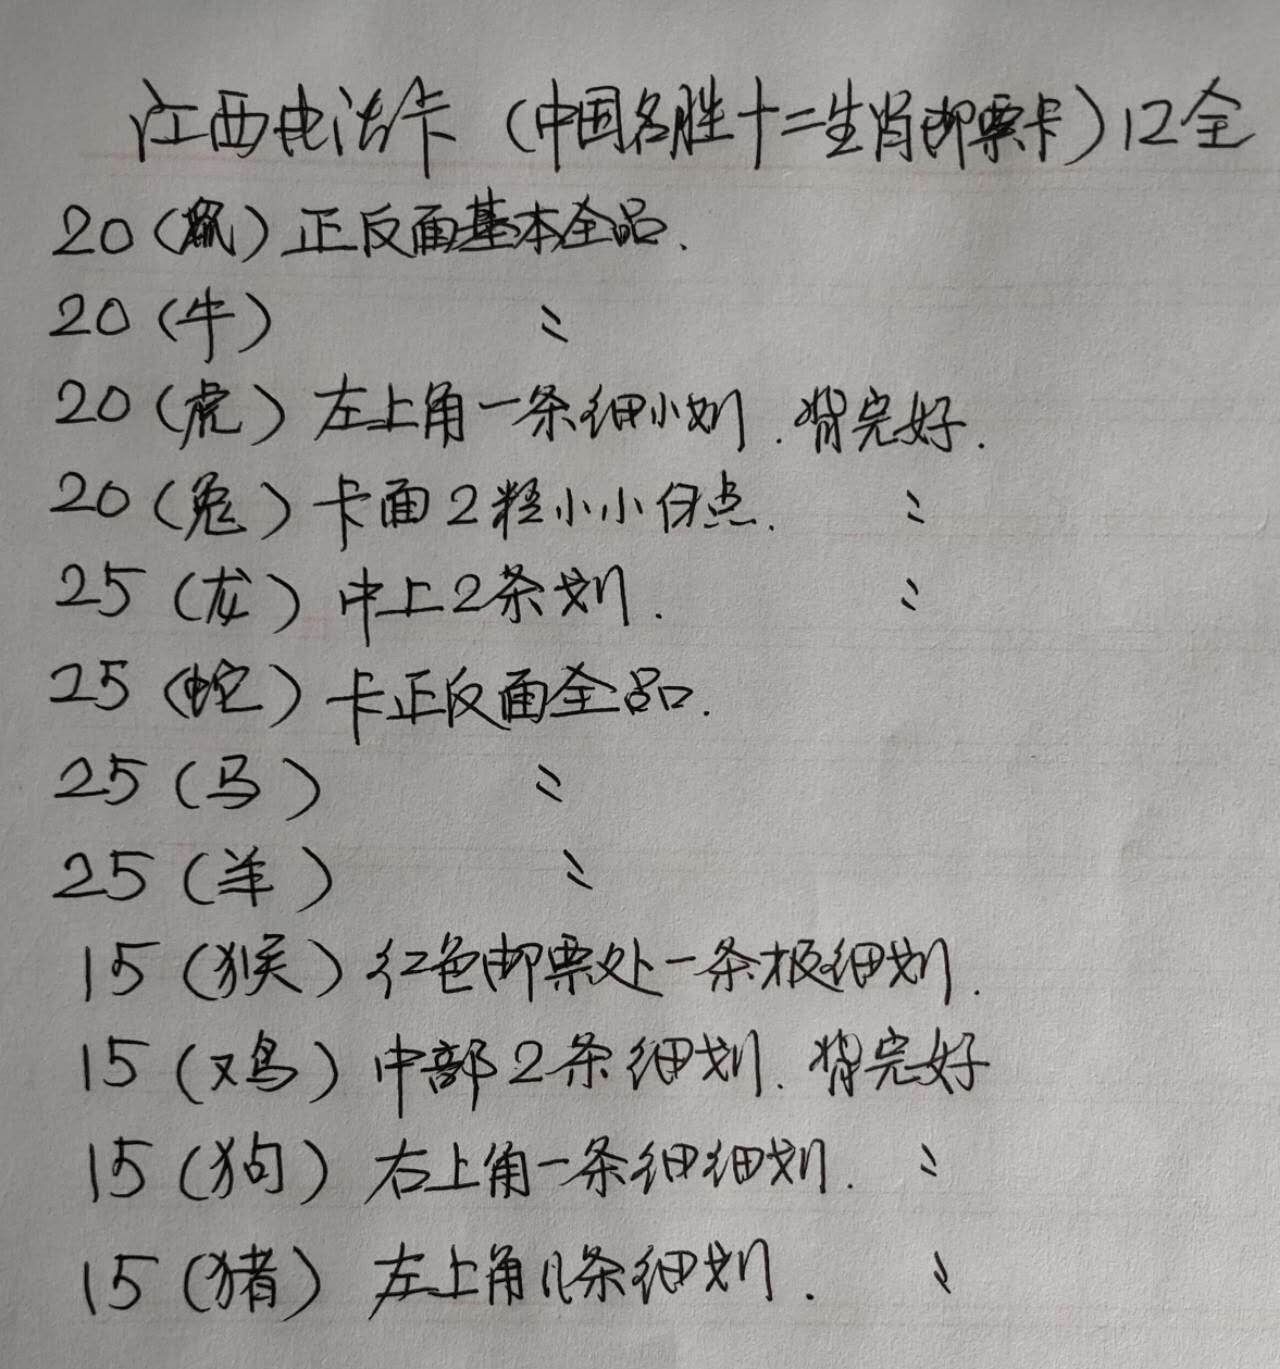 江西电话卡（中国名胜十二生肖邮票卡）12全
20（鼠）正反面基本全品.
20（牛） 〃
20（虎）左上角一条细小划.背完好.
20（兔）卡面2粒小小白点. 〃
25（龙）中上2条划. 〃
25（蛇）卡正反面全品.
25（马） 〃
25（羊） 〃
15（猴）红色邮票处一条极细划.
15（鸡）中部2条细划.背完好
15（狗）右上角一条细细划. 〃
15（猪）左上角几条细划. 〃